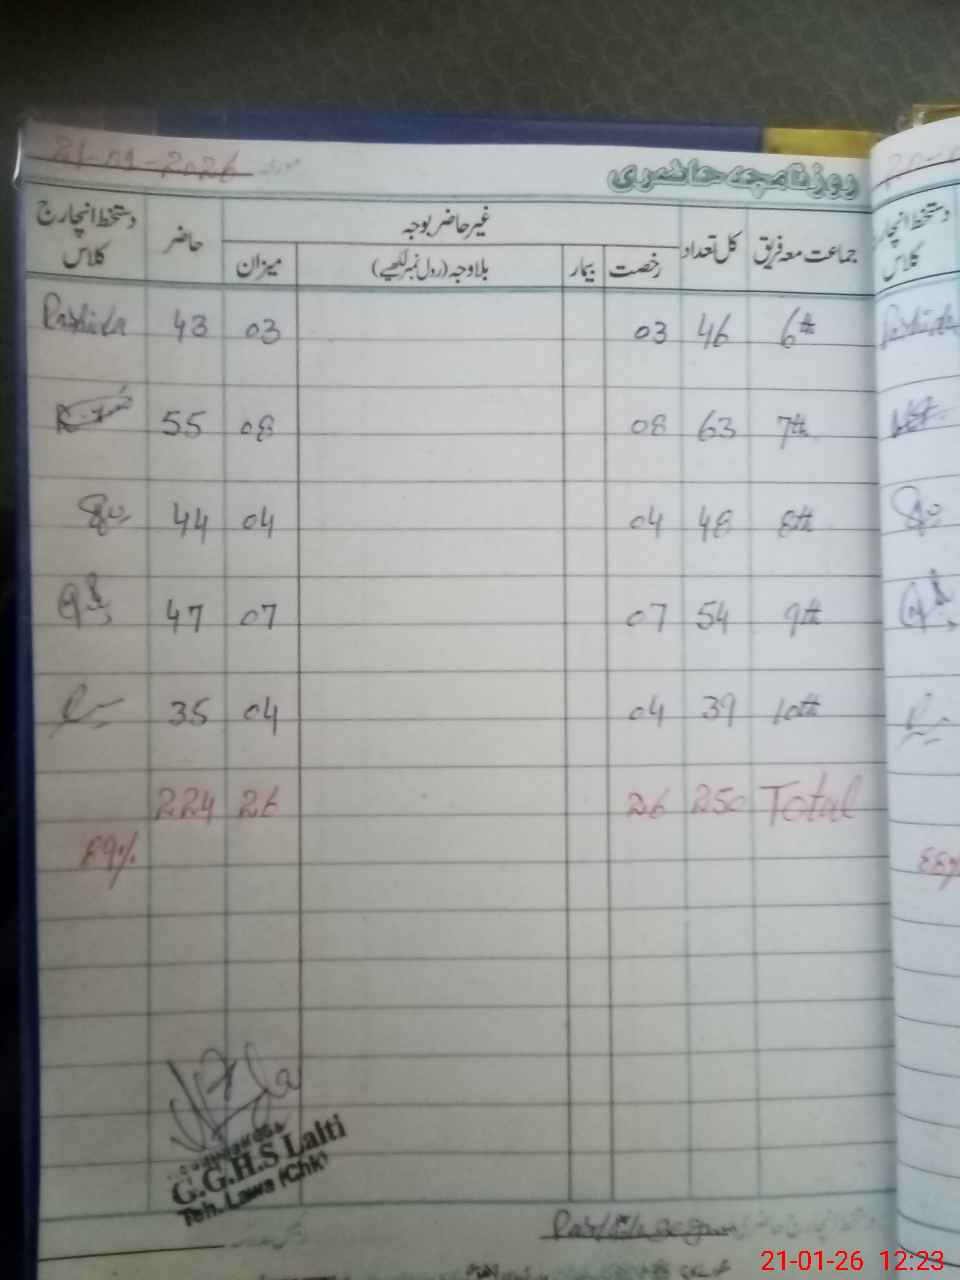 روزنامچہ حاضری
مورخہ 21-01-2026
جماعت معہ فریق کل تعداد غیر حاضر بوجہ حاضر دستخط انچارج کلاس
رخصت بیمار بلاوجہ (رول نمبر لکھیے) میزان
6th 46 03 03 43 Rashida
7th 63 08 08 55
8th 48 04 04 44
9th 54 07 07 47
10th 39 04 04 35
Total 250 26 26 224
89%
G.G.H.S Lalti
Teh. Lawa (Chk)
دستخط انچارج حاضری
21-01-26 12:23
دستخط انچارج
کلاس
Rashida
88%